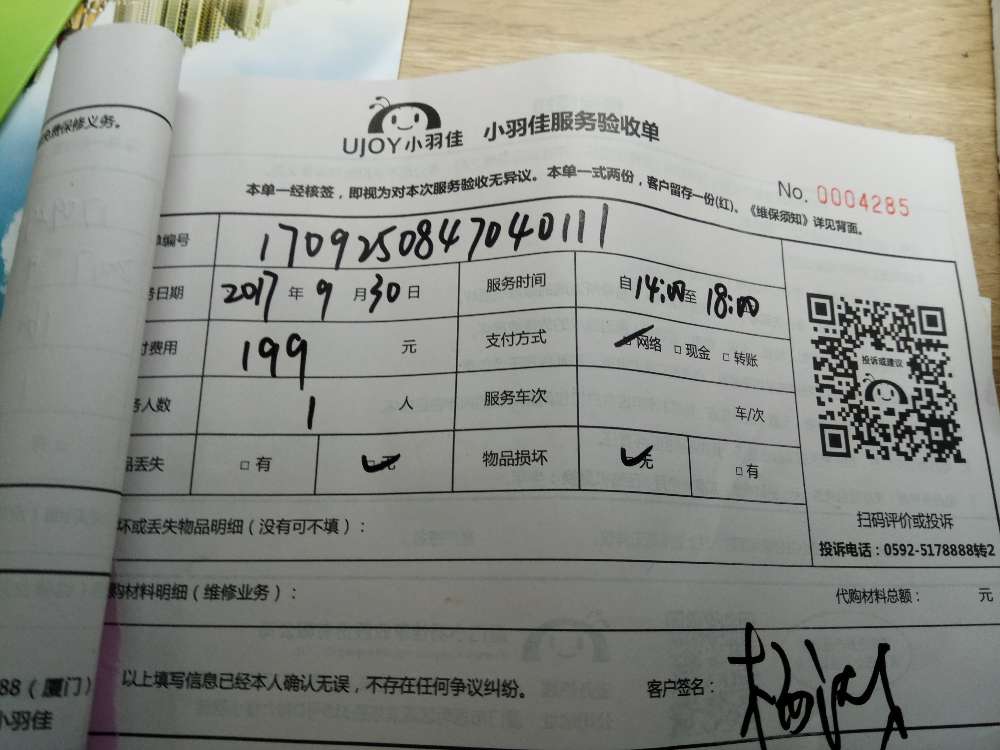 免费保修义务。
UJOY小羽佳 小羽佳服务验收单
本单一经核签，即视为对本次服务验收无异议。本单一式两份，客户留存一份(红)。《维保须知》详见背面。
No. 0004285
编号 1709250847040111
日期 2017年9月30日 服务时间 自14:00至18:00
付费用 199元 支付方式 ☑网络 □现金 □转账
务人数 1人 服务车次 车/次
品丢失 □有 ☑无 物品损坏 ☑无 □有
投诉或建议
扫码评价或投诉
投诉电话：0592-5178888转2
坏或丢失物品明细（没有可不填）：
购材料明细（维修业务）： 代购材料总额： 元
以上填写信息已经本人确认无误，不存在任何争议纠纷。 客户签名：
88（厦门）
小羽佳